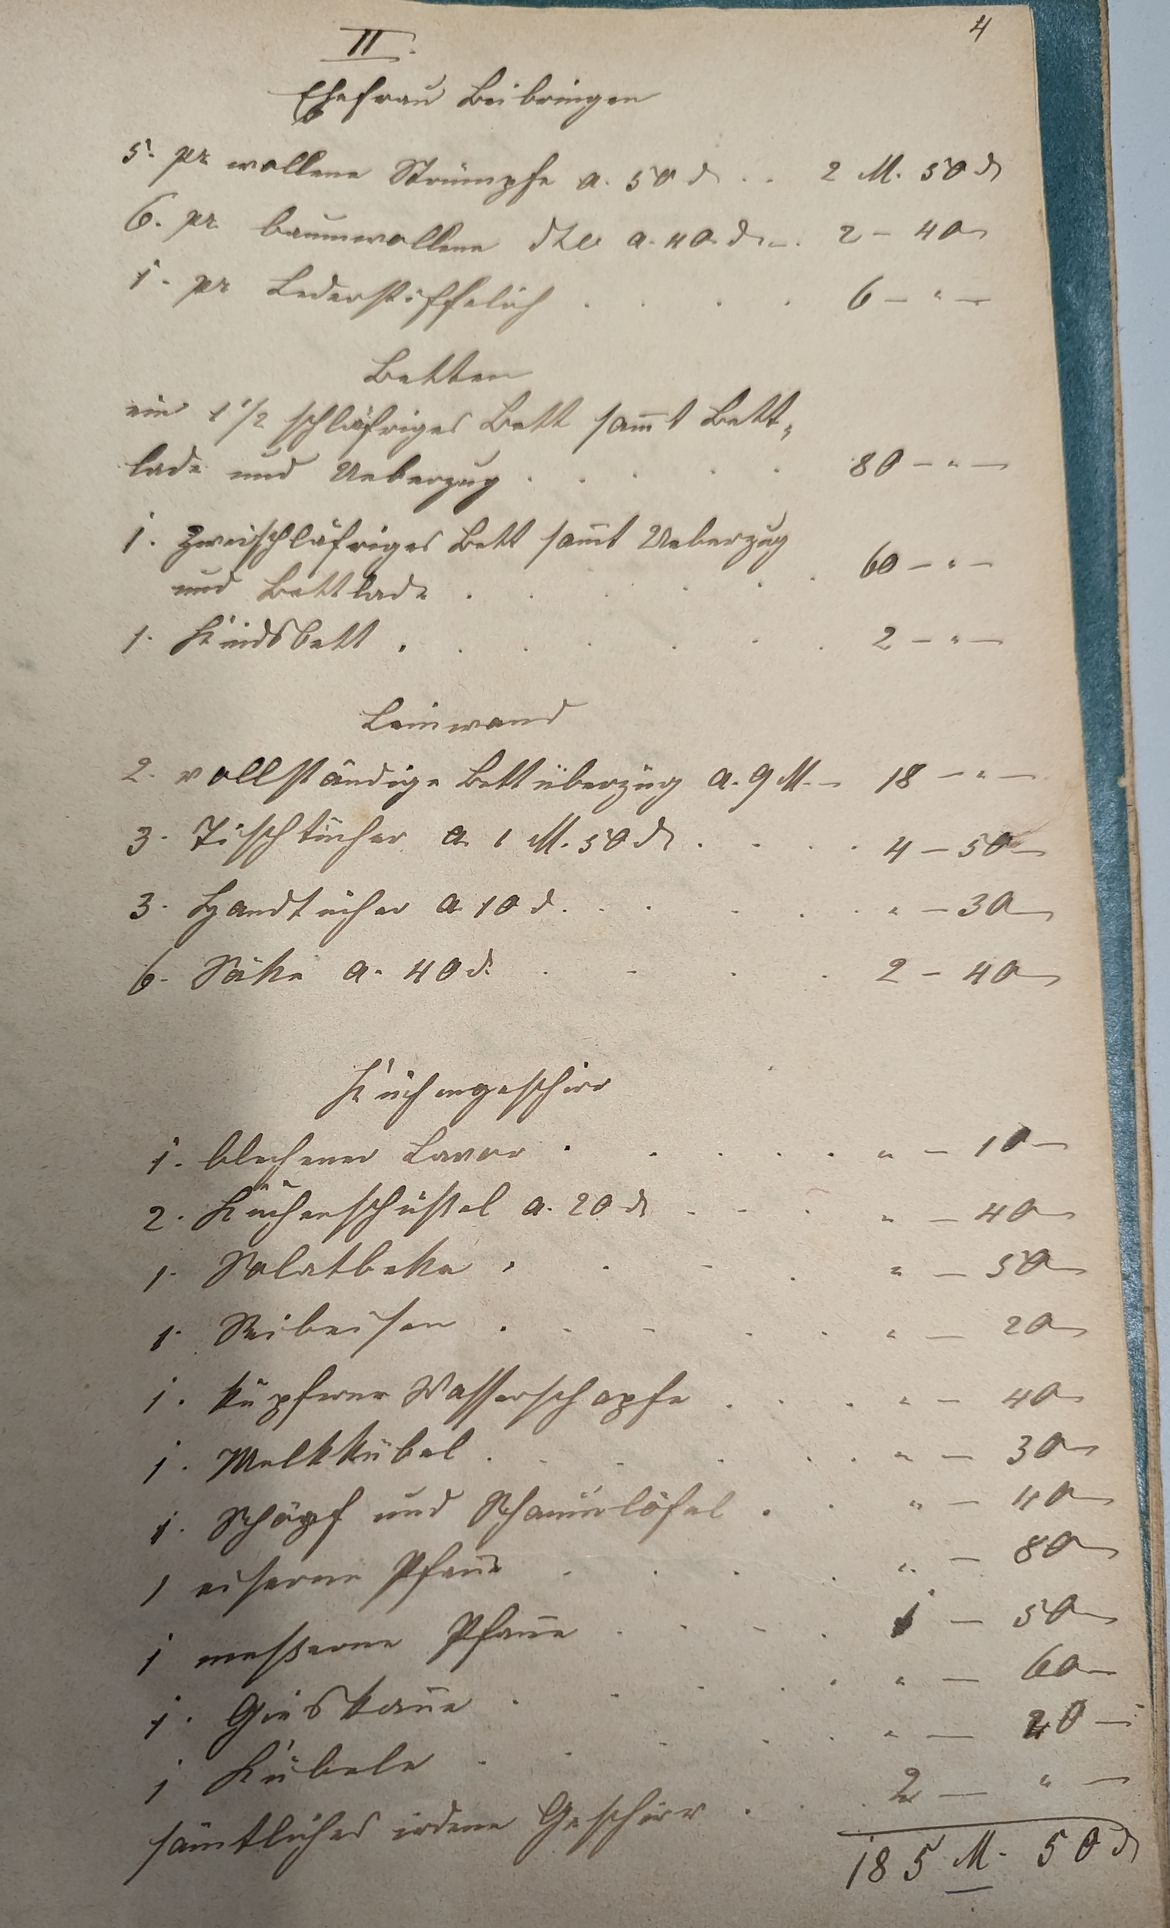 4
II.
Ehefrau Beibringen
5. pr wollene Strümpfe a. 50 d . . 2 M. 50 d
6. pr. baumwollene dto a. 40 d . 2 – 40
1. pr Lederstiffelich . . . . 6 – " –
Betten
ein 1 1/2 schläfriges Bett sam̄t Bett„
lade und Ueberzug . . . . . 80 – " –
1. zweischläfriges Bett sam̄t Ueberzug
und Bettlade . . . . . . 60 – " –
1. Kindsbett . . . . . . 2 – " –
Leinwand
2. vollständige Bettüberzüg a. 9 M. – 18 – " –
3. Tischtücher a 1 M. 50 d . . . 4 – 50
3. Handtücher a 10 d. . . . . . " – 30
6. Säke a. 40 d. . . . . 2 – 40
Küchengeschirr
1. blechener Lavor . . . . . . " – 10 –
2. Küchenschüßel a. 20 d . . . " – 40
1. Salatbeke . . . . " – 50
1. Reibeisen . . . . . . " – 20
1. kupferner Wasserschapfe . . . " – 40
1. Melkkübel . . . . . . " – 30
1. Schöpf und Schaumlöfel . . " – 40
1 eiserne Pfan̄e . . . . " – 80
1 meßerne Pfan̄e . . . . 1 – 50
1. Gieskan̄e . . . . . " – 60
1 Kübele . . . . . " – 20 –
sämtliches irdene Geschirr . . . 2 – " –
185 M. 50 d